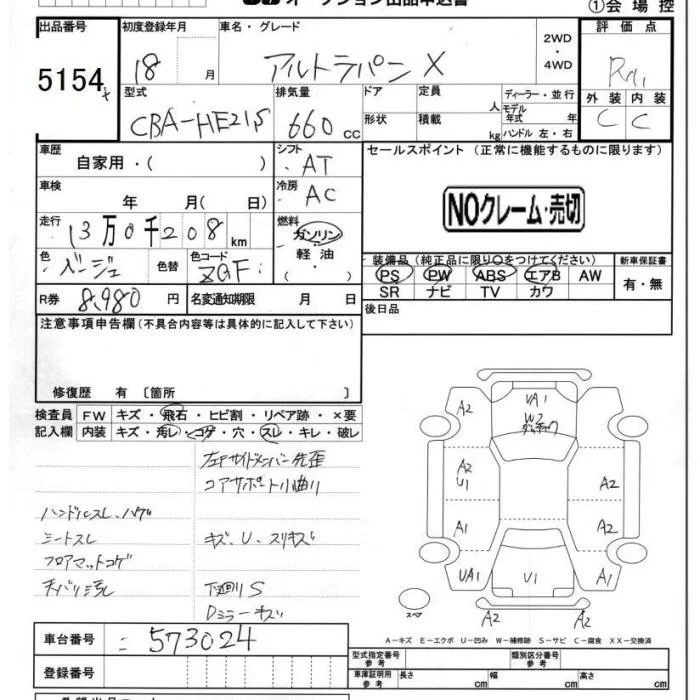 オークション出品申込書
①会場控
出品番号
5154
初度登録年月
18 月
車名・グレード
アルトラパン X
2WD
・
4WD
評価点
外装 内装
C C
型式
CBA-HE21S
排気量
660 cc
ドア
形状
定員 人
積載 kg
ディーラー・並行
モデル年式 年式
ハンドル 左・右
車歴
自家用・( )
シフト
AT
セールスポイント (正常に機能するものに限ります)
車検
年 月( 日)
冷房
AC
NOクレーム・売切
走行
13万0千208km
燃料
ガソリン
軽油
( ・ )
色
ベージュ
色替
色コード
ZGF
装備品 (純正品に限り○をつけてください)
PS PW ABS エアB AW
SR ナビ TV カワ
新車保証書
有・無
R券
8,980円
名変通知期限 月 日
後日品
注意事項申告欄 (不具合内容等は具体的に記入して下さい)
修復歴 有 〔箇所 〕
検査員
記入欄
FW キズ・飛石・ヒビ割・リペア跡・×要
内装 キズ・汚レ・コゲ・穴・スレ・キレ・破レ
左Fサイドメンバー先歪
コアサポート小曲り
ハンドルスレ、ハゲ
シートスレ
キズ、U、スリキズ
フロアマットコゲ
天バリ汚れ
下廻りS
Dミラーキズ
A2
UA1
W2
A2
U1
A2
A1
A2
UA1
U1
A1
スペア
A2
A2
A-キズ E-エクボ U-凹み W-補修跡 S-サビ C-腐食 XX-交換済
車台番号
573024
登録番号
型式指定番号
参考
類別区分番号
参考
車庫証明用
参考
長さ cm
幅 cm
高さ cm